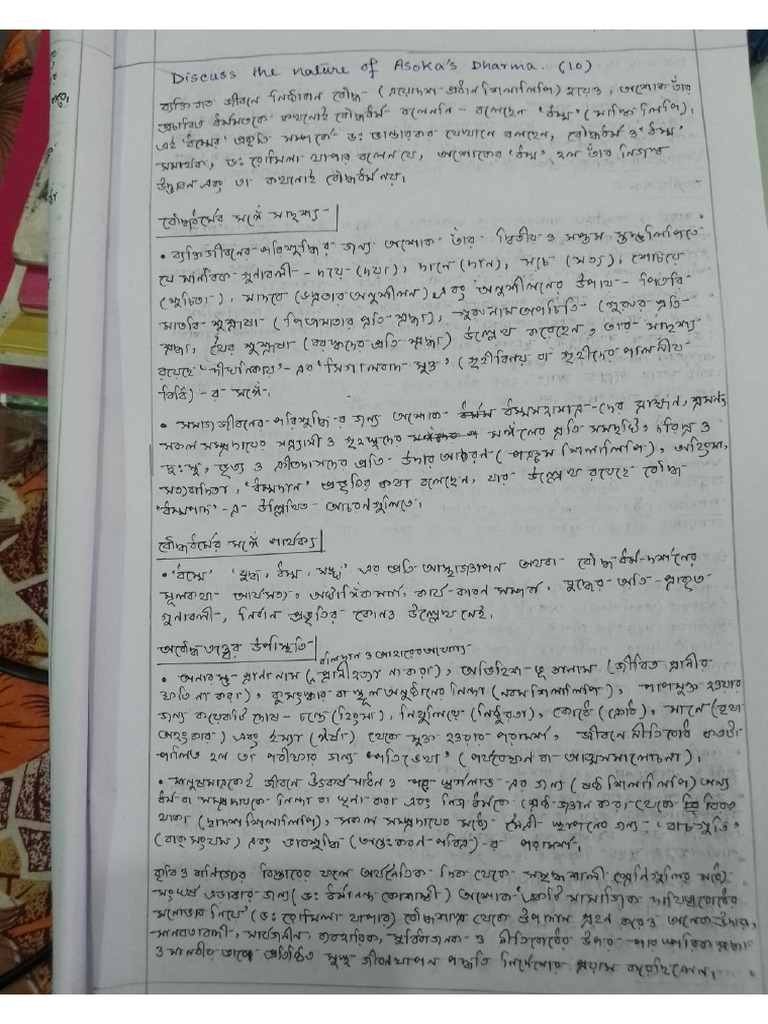 Discuss the nature of Asoka's Dharma. (10)
ব্যক্তিগত জীবনে নিষ্ঠাবান বৌদ্ধ (ত্রয়োদশ প্রধান শিলালিপি) হয়েও, অশোক তাঁর
প্রচারিত ধর্মমতকে কখনোই বৌদ্ধধর্ম বলেননি - বলেছেন 'ধম্ম' (মাস্কি লিপি)।
এই 'ধম্মের' প্রকৃতি সম্পর্কে ডঃ ভান্ডারকর যেখানে বলছেন, বৌদ্ধধর্ম ও 'ধম্ম'
সমার্থক, ডঃ রোমিলা থাপার বলেন যে, অশোকের 'ধম্ম' হল তাঁর নিজস্ব
উদ্ভাবন এবং তা কখনোই বৌদ্ধধর্ম নয়।
বৌদ্ধধর্মের সঙ্গে সাদৃশ্য-
• ব্যক্তিজীবনের পরিশুদ্ধির জন্য অশোক তাঁর দ্বিতীয় ও সপ্তম স্তম্ভলিপিতে
যে মানবিক গুনাবলী - দয়ে (দয়া), দানে (দান), সচে (সত্য), শোচয়ে
(শুচিতা), মাদবে (ভদ্রতার অনুশীলন) এবং অনুশীলনের উপায় - পিতরি
মাতরি শুশ্রূষা (পিতামাতার প্রতি শ্রদ্ধা), গুরুনাম অপচিতি (গুরুর প্রতি
শ্রদ্ধা, থৈর শুশ্রূষা (বয়স্কদের প্রতি শ্রদ্ধা) উল্লেখ করেছেন, তার সাদৃশ্য
রয়েছে 'দীঘনিকায়'-এর 'সিগালবাদ সুত্ত' (গৃহীবিনয় বা গৃহীদের পালনীয়
বিধি)-র সঙ্গে।
• সমাজজীবনের পরিশুদ্ধি-র জন্য অশোক ধম্মমহামাত্র-দের ব্রাহ্মন, শ্রমনসহ
সকল সম্প্রদায়ের সন্ন্যাসী ও গৃহস্থদের মঙ্গলের প্রতি সমদৃষ্টি, দরিদ্র ও
দুঃস্থ, ভৃত্য ও ক্রীতদাসদের প্রতি উদার আচরন (পঞ্চম শিলালিপি), অহিংসা,
সত্যবাদিতা, 'ধম্মদান' প্রভৃতির কথা বলেছেন, যার উল্লেখ রয়েছে বৌদ্ধ
'ধম্মপদ'-এ উল্লিখিত আচরনগুলিতে।
বৌদ্ধধর্মের সঙ্গে পার্থক্য
• 'ধম্মে' 'বুদ্ধ, ধম্ম, সঙ্ঘ' এর প্রতি আস্থাজ্ঞাপন অথবা বৌদ্ধ ধর্ম-দর্শনের
মূলকথা - আর্যসত্য, অষ্টাঙ্গিকমার্গ, কার্য-কারন সম্পর্ক, বুদ্ধের অতি-প্রাকৃত
গুনাবলী, নির্বান প্রভৃতির কোনও উল্লেখ নেই।
অবৌদ্ধ তত্ত্বের উপস্থিতি-
বলিদান ও আহারের জন্য
• অনারম্ভ প্রানানাম (প্রানীহত্যা না করা), অভিহিশ ভূতানাম (জীবিত প্রানীর
ক্ষতি না করা), কুসংস্কার বা স্থূল অনুষ্ঠানের নিন্দা (নবম শিলালিপি), পাপমুক্ত হওয়ার
জন্য কয়েকটি দোষ - চন্ডে (হিংসা), নিষ্ঠুলিয়ে (নিষ্ঠুরতা), কোধে (ক্রোধ), মানে (বৃথা
অহংকার) এবং ইস্যা (ঈর্ষা) থেকে মুক্ত হওয়ার পরামর্শ, জীবনে নীতিবোধ কতটা
পালিত হল তা পরীক্ষার জন্য 'পতিভেখা' (পর্যবেক্ষন বা আত্মসমালোচনা)।
• মানুষমাত্রকেই জীবনে উৎকর্ষ সাধন ও স্বর্গলাভ-এর জন্য (ষষ্ঠ শিলালিপি) অন্য
ধর্ম বা সম্প্রদায়কে নিন্দা বা ঘৃনা করা এবং নিজ ধর্মকে শ্রেষ্ঠ জ্ঞান করা থেকে বিরত
থাকা (দ্বাদশ শিলালিপি), সকল সম্প্রদায়ের মধ্যে মৈত্রী স্থাপনের জন্য 'বাচগুতি'
(বাক্ সংযম) এবং ভাবশুদ্ধি (অন্তঃকরন পবিত্র)-র পরামর্শ।
কৃষি ও বানিজ্যের বিস্তারের ফলে অর্থনৈতিক দিক থেকে সমৃদ্ধশালী শ্রেনিগুলির মধ্যে
সংঘর্ষ এড়াবার জন্য (ডঃ ধর্মানন্দ কোশাম্বী) অশোক 'একটি সামাজিক দায়িত্ববোধের
মনোভাব নিয়ে' (ডঃ রোমিলা থাপার) বৌদ্ধশাস্ত্র থেকে উপাদান গ্রহন করেও অনেক উদার,
মানবতাবাদী, সার্বজনীন, ব্যবহারিক, সুবিধাজনক ও নীতিবোধের উপর পারস্পরিক শ্রদ্ধা
ও মানবীয় ভাবে প্রতিষ্ঠিত সুস্থ জীবনযাপন পদ্ধতি নির্দেশের প্রয়াস করেছিলেন।